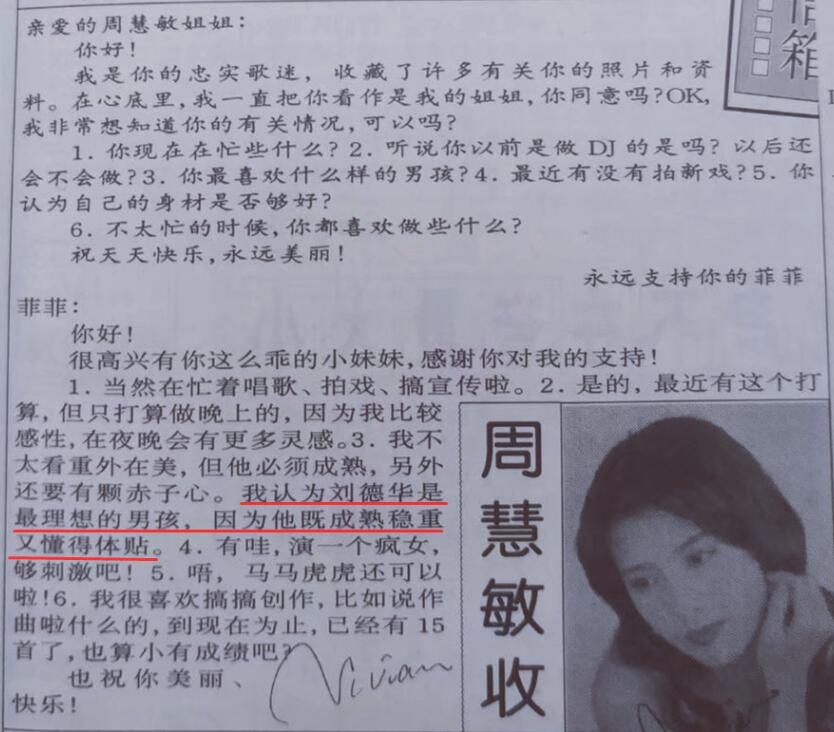 信
箱
亲爱的周慧敏姐姐:
你好!
我是你的忠实歌迷, 收藏了许多有关你的照片和资
料。在心底里,我一直把你看作是我的姐姐,你同意吗?OK,
我非常想知道你的有关情况,可以吗?
1. 你现在在忙些什么? 2. 听说你以前是做 DJ 的是吗? 以后还
会不会做?3. 你最喜欢什么样的男孩?4. 最近有没有拍新戏?5. 你
认为自己的身材是否够好?
6. 不太忙的时候,你都喜欢做些什么?
祝天天快乐,永远美丽!
永远支持你的菲菲
菲菲:
你好!
很高兴有你这么乖的小妹妹,感谢你对我的支持!
1. 当然在忙着唱歌、拍戏、搞宣传啦。2. 是的, 最近有这个打
算, 但只打算做晚上的, 因为我比较
感性,在夜晚会有更多灵感。3. 我不
太看重外在美, 但他必须成熟, 另外
还要有颗赤子心。我认为刘德华是
最理想的男孩, 因为他既成熟稳重
又懂得体贴。4. 有哇, 演一个疯女,
够刺激吧! 5. 唔, 马马虎虎还可以
啦!6. 我很喜欢搞搞创作, 比如说作
曲啦什么的, 到现在为止, 已经有 15
首了, 也算小有成绩吧?
也祝你美丽、
快乐!
Vivian
周
慧
敏
收
Vivian